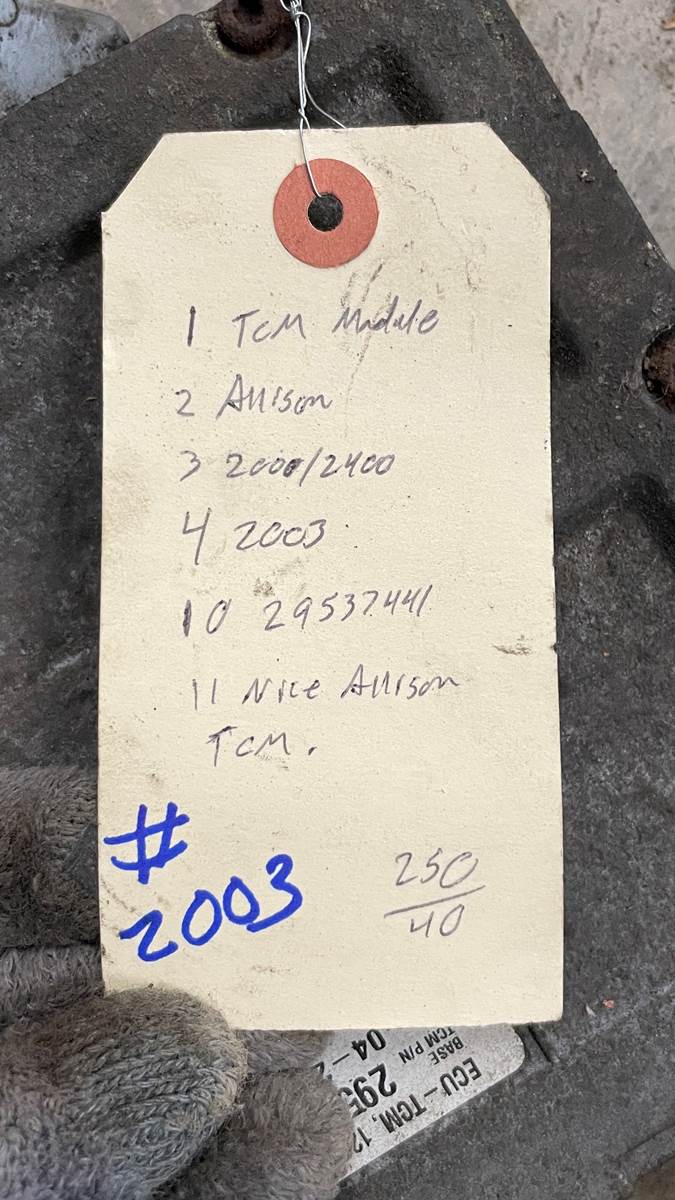 1 TCM Module
2 Allison
3 2000/2400
4 2003
10 29537441
11 Nice Allison
TCM.
#
2003
250
40
ECU-TCM, 12
295
BASE
TCM P/N
04-